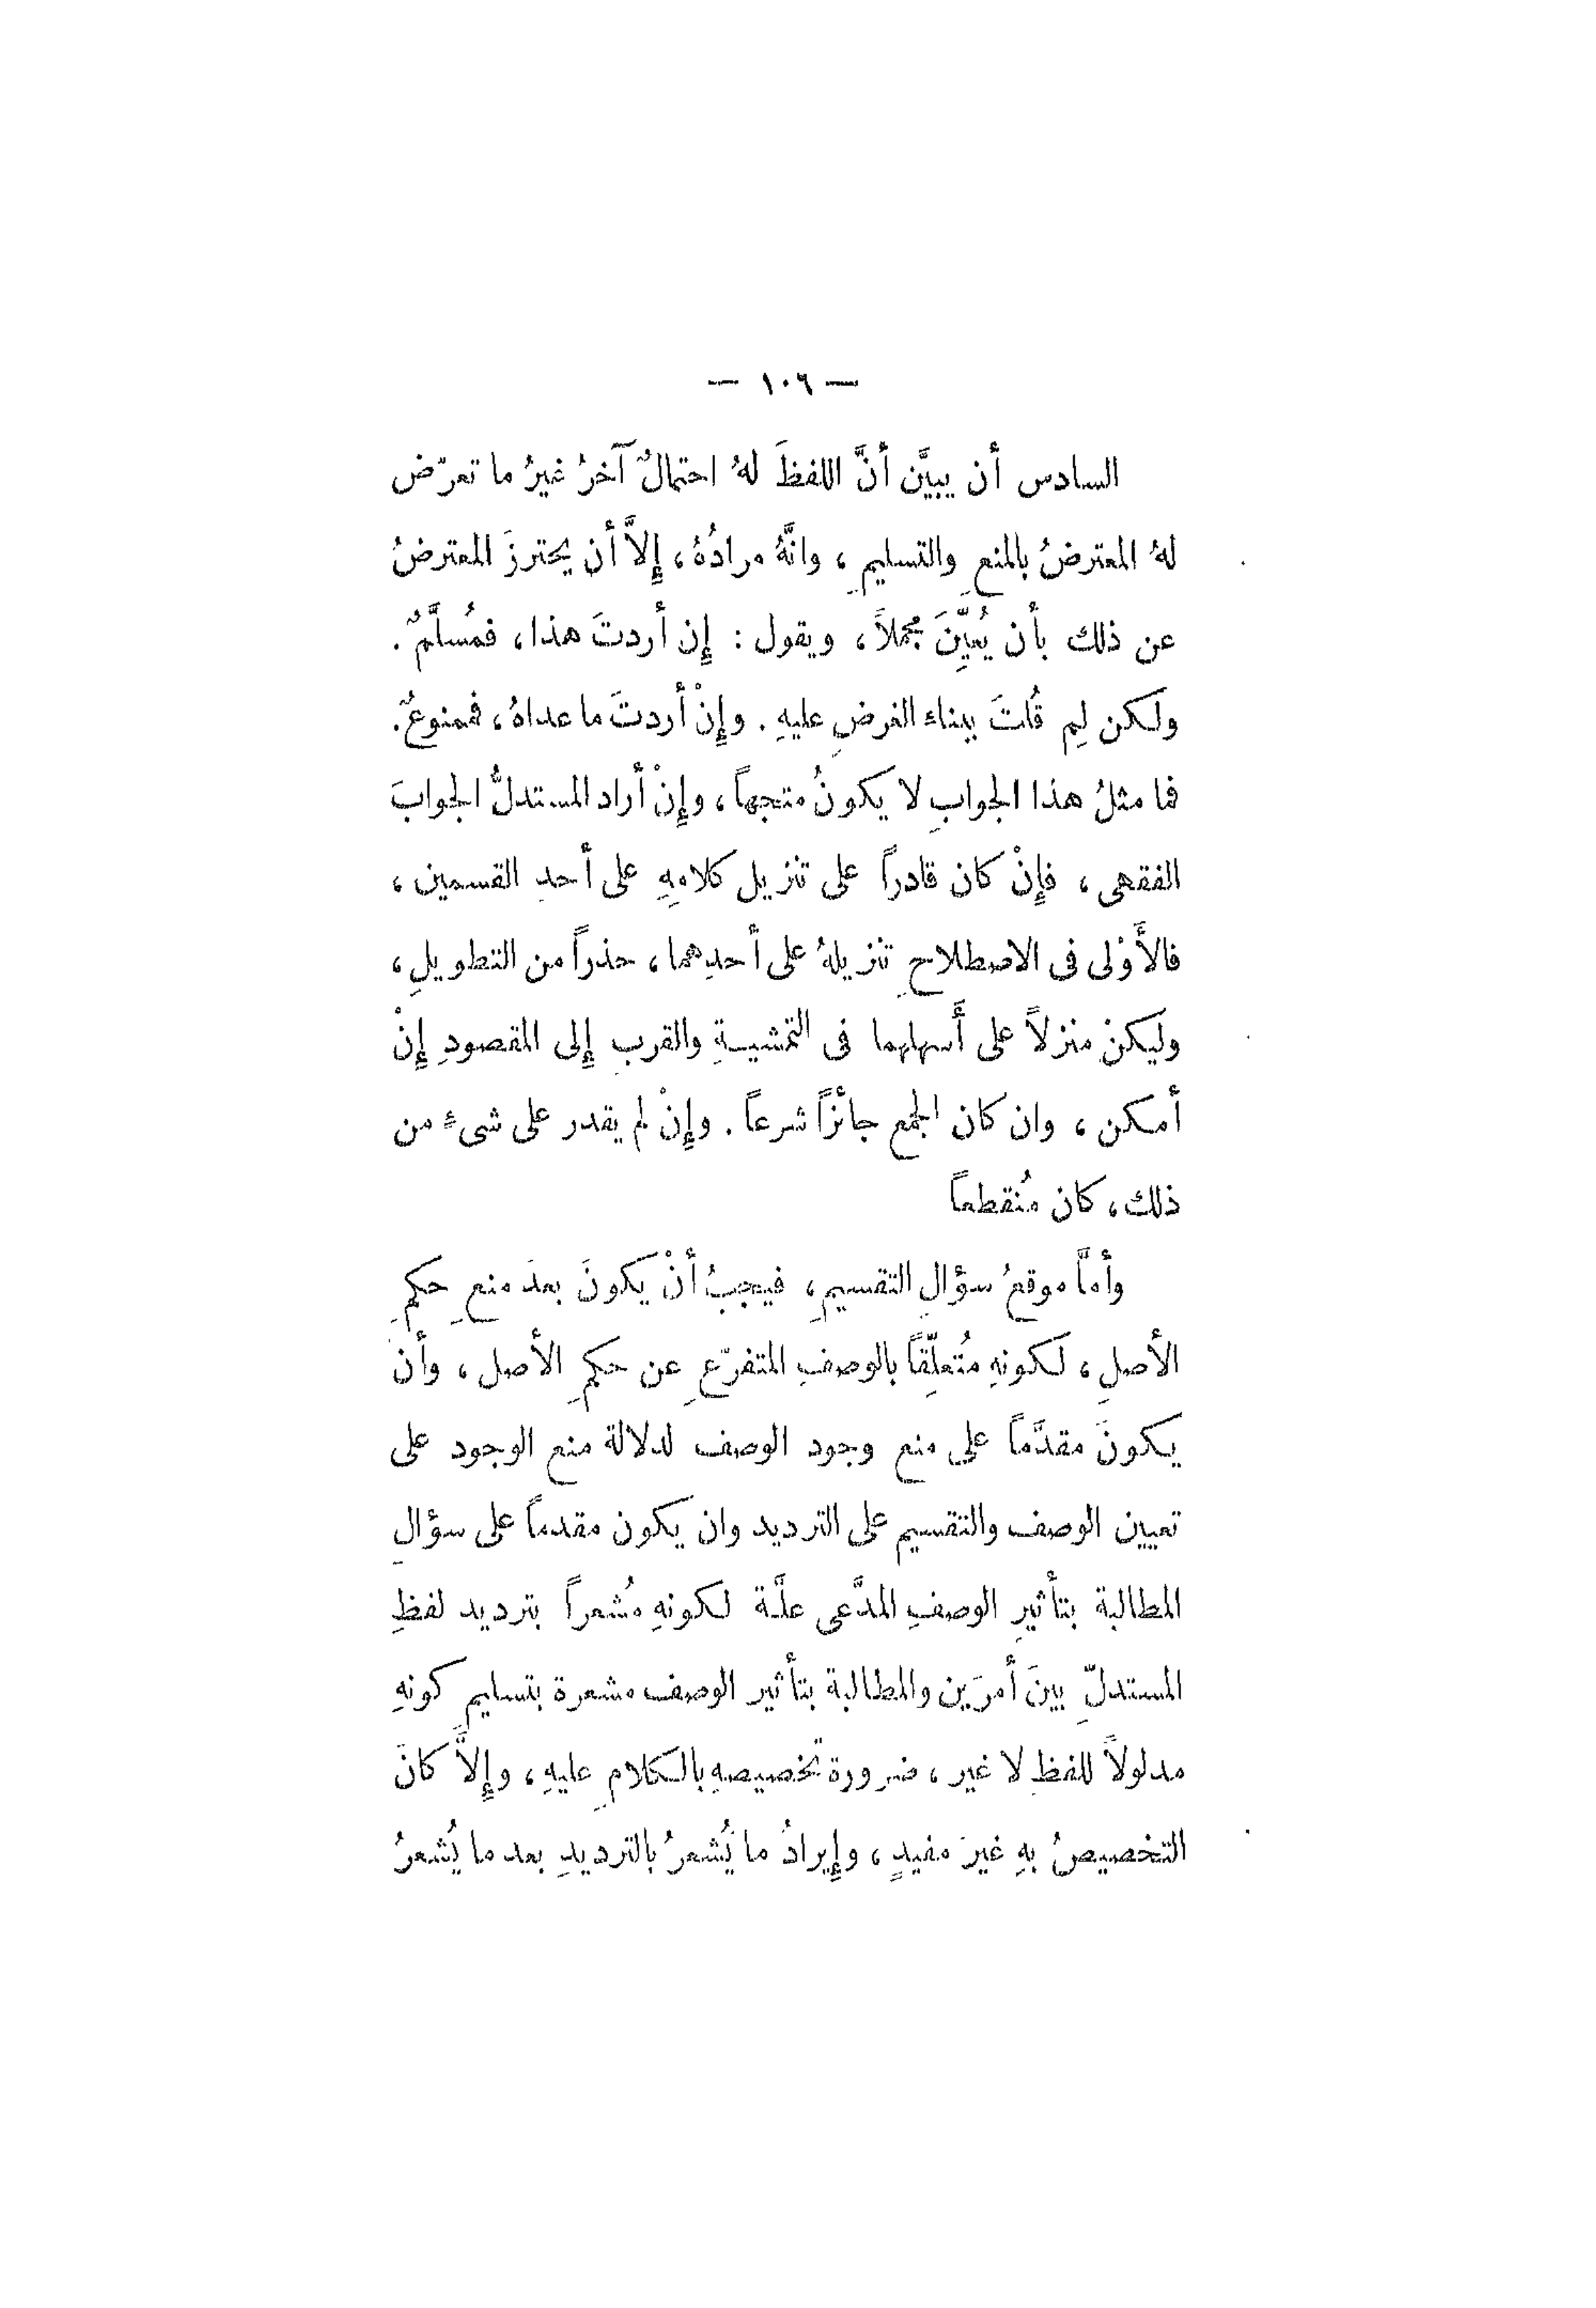 — ١٠٦ —
السادس أن يبيَّن أنَّ اللفظَ لهُ احتمالٌ آخرُ غيرُ ما تعرّض
لهُ المعترضُ بالمنعِ والتسليمِ ، وانَّهُ مرادُهُ ، إِلاَّ أن يحترزَ المعترضُ
عن ذلك بأن يُعيِّنَ مجملاً ، ويقول : إِن أردتَ هذا ، فمُسلَّمٌ .
ولكن لِم قُلتَ ببناء الغرضِ عليهِ . وإِنْ أردتَ ما عداهُ ، فممنوعٌ .
فما مثلُ هذا الجوابِ لا يكونُ متجهاً ، وإِنْ أراد المستدلُّ الجوابَ
الفقهى ، فإِنْ كان قادراً على تنزيل كلامِهِ على أحدِ القسمين ،
فالأَوْلى فى الاصطلاحِ تنزيلهُ على أحدِهما ، حذراً من التطويلِ ،
وليكنْ منزلاً على أَسهلهما فى التمشيةِ والقربِ إِلى المقصودِ إِنْ
أمكن ، وان كان الجمع جائزاً شرعاً . وإِنْ لم يقدر على شىءٍ من
ذلك ، كان مُنقطعاً
وأمَّا موقعُ سؤالِ التقسيمِ ، فيجبُ أنْ يكونَ بعدَ منعِ حكمِ
الأصلِ ، لكونهِ مُتعلِّقاً بالوصفِ المتفرّعِ عن حكمِ الأصل ، وأن
يكونَ مقدَّماً على منع وجود الوصف لدلالة منع الوجود على
تعيين الوصف والتقسيم على الترديد وان يكون مقدماً على سؤالِ
المطالبة بتأثيرِ الوصفِ المدَّعى علَّة لكونهِ مُشعراً بترديد لفظِ
المستدلِّ بينَ أمرَين والمطالبة بتأثير الوصف مشعرة بتسليمِ كونهِ
مدلولاً للفظِ لا غير ، ضرورة تخصيصهِ بالكلامِ عليهِ ، وإِلاَّ كانَ
التخصيصُ بهِ غيرَ مفيدٍ ، وإِيرادُ ما يُشعرُ بالترديدِ بعد ما يُشعرُ